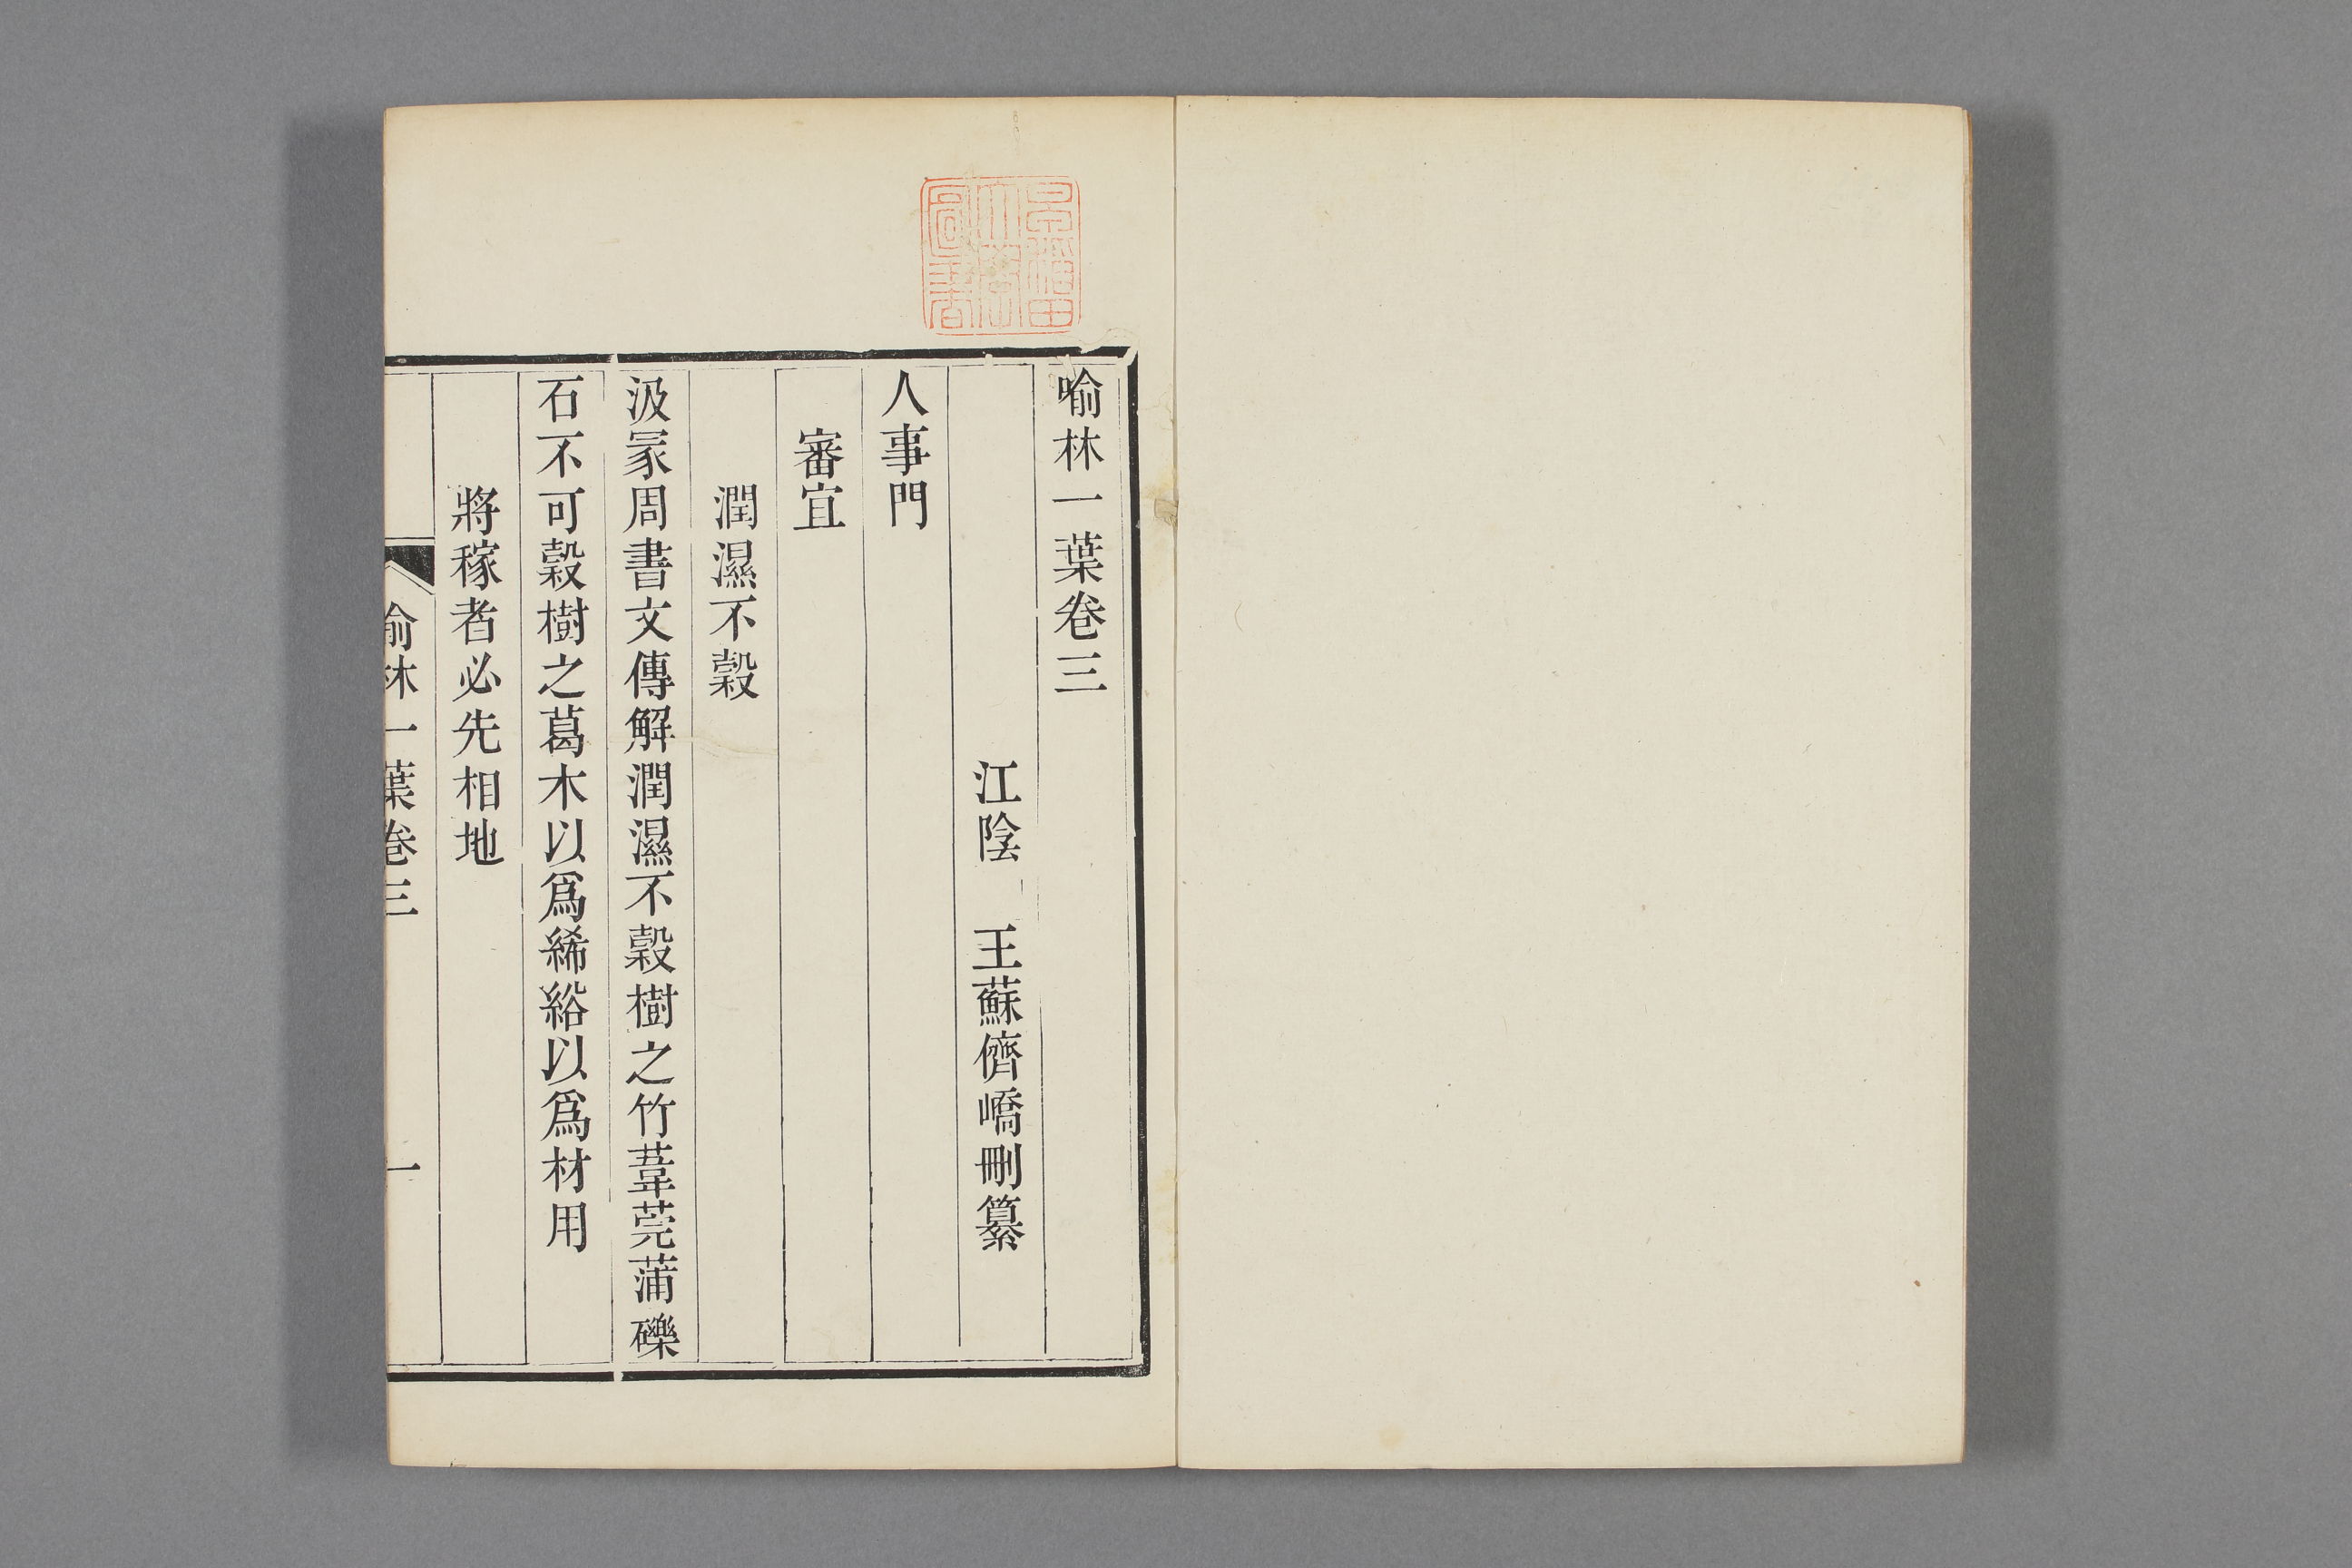 喻林一葉卷三
江陰 王蘇儕嶠刪纂
人事門
審宜
潤濕不穀
汲冢周書文傳解潤濕不穀樹之竹葦莞蒲礫
石不可穀樹之葛木以爲絺綌以爲材用
將稼者必先相地
喻林一葉卷三
一
早稻田大學圖書